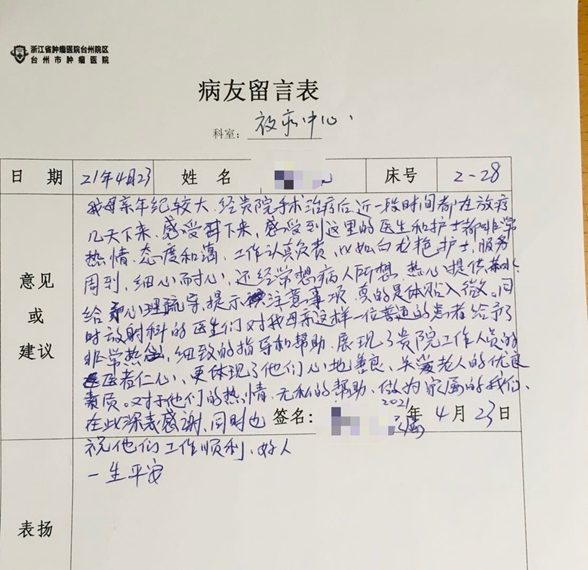 浙江省肿瘤医院台州院区
台州市肿瘤医院
病友留言表
科室: 放疗中心.
日 期 21年4月23 姓 名 床号 2-28
意见
或
建议
我母亲年纪较大,经贵院手术治疗后近一段时间都在放疗
几天下来,感受到这里的医生和护士都非常
热情,态度和蔼,工作认真负责,以如白龙艳护士,服务
周到,细心而耐心,还经常想病人所想,热心提供
给予心理疏导,提示注意事项,真的是体贴入微。同
时放射科的医生们对我母亲这样一位普通的患者给予了
非常热心,细致的指导和帮助,展现了贵院工作人员的
医者仁心,更体现了他们心地善良,关爱老人的优良
素质。对于他们的热情,无私的帮助,做为家属的我们,
在此深表感谢,同时也
签名: 属 2021年4月23日
祝他们工作顺利,好人
一生平安
表扬